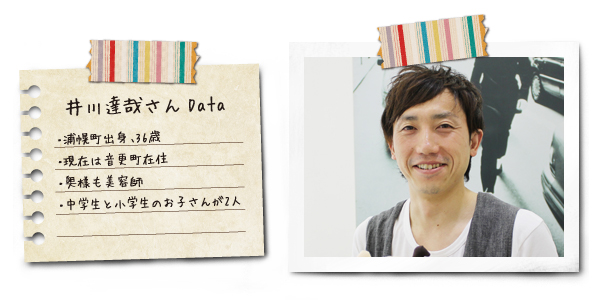 井川達哉さん Data
・浦幌町出身、36歳
・現在は音更町在住
・奥様も美容師
・中学生と小学生のお子さんが2人